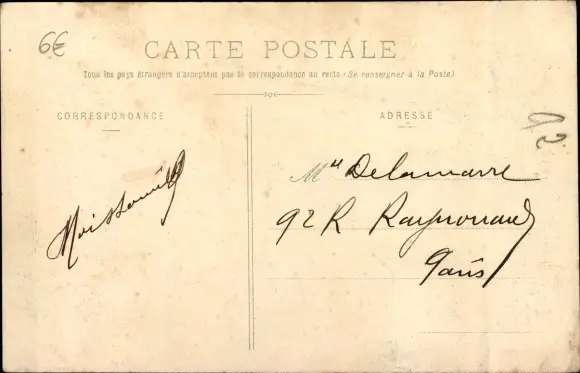 6€
CARTE POSTALE
Tous les pays étrangers n'acceptent pas la correspondance au recto (Se renseigner à la Poste)
CORRESPONDANCE
ADRESSE
Mlle Delamarre
92 R Raynouard
Paris